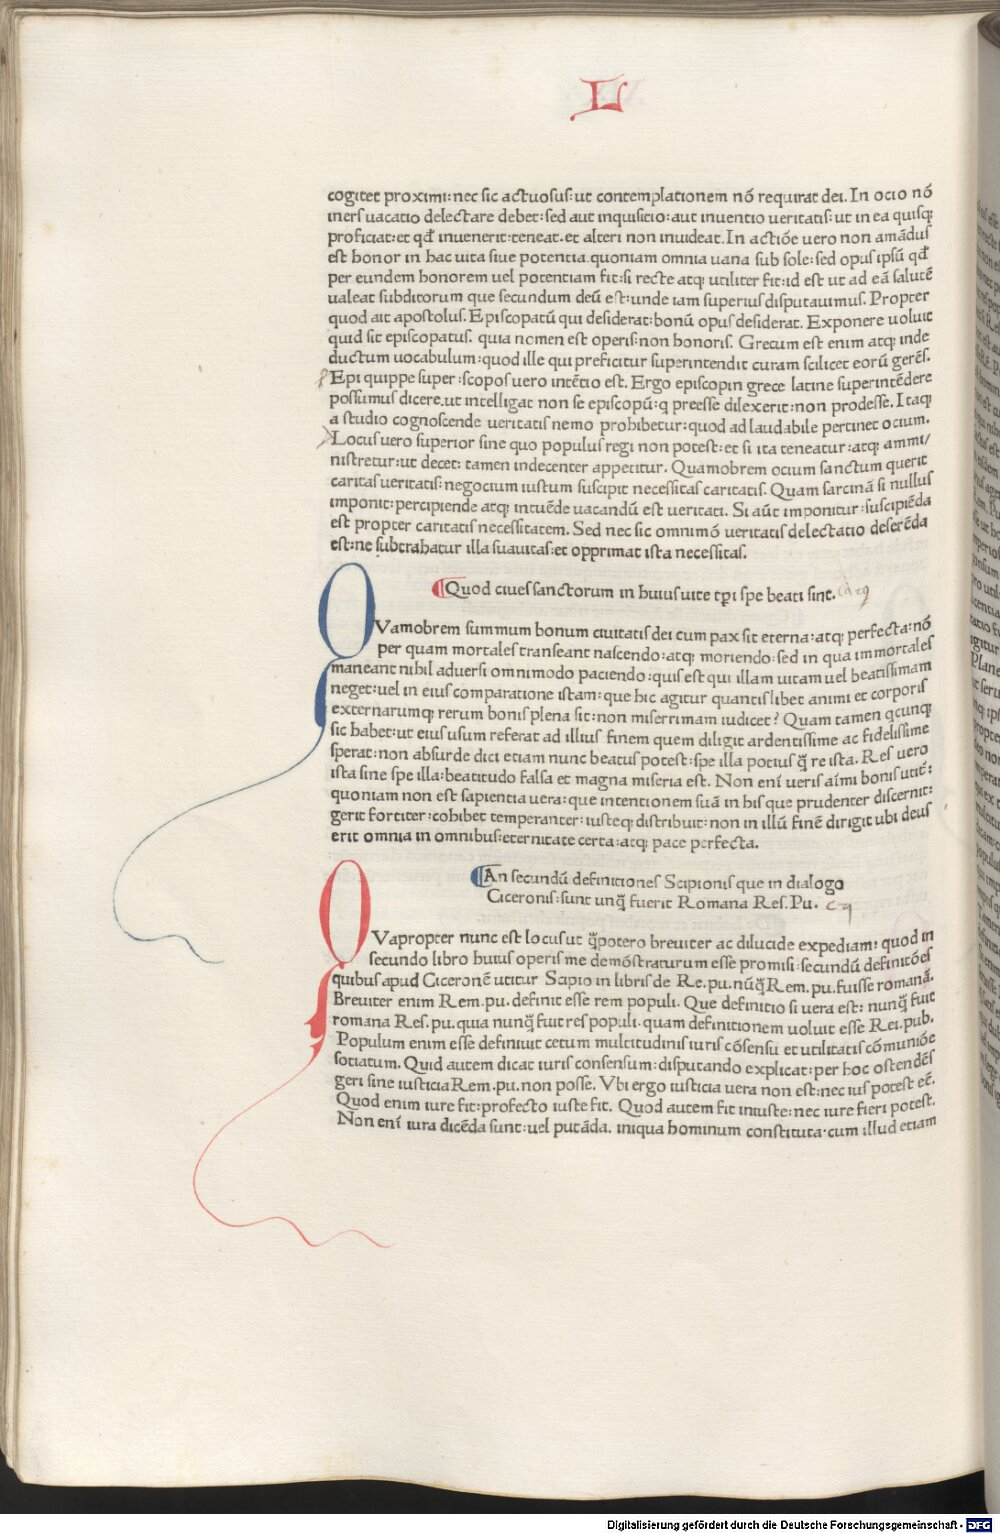 L
cogitet proximi: nec sic actuosus: ut contemplationem nō requirat dei. In ocio nō
iners uacatio delectare debet: sed aut inquisitio: aut inuentio ueritatis: ut in ea quisq;
proficiat: et qđ inuenerit: teneat. et alteri non inuideat. In actiōe uero non amādus
est honor in hac uita siue potentia. quoniam omnia uana sub sole: sed opus ipsū qđ
per eundem honorem uel potentiam fit: si recte atq; utiliter fit: id est ut ad eā salutē
ualeat subditorum que secundum deū est: unde iam superius disputauimus. Propter
quod ait apostolus. Episcopatū qui desiderat: bonū opus desiderat. Exponere uoluit
quid sit episcopatus. quia nomen est operis: non honoris. Grecum est enim atq; inde
ductum uocabulum: quod ille qui preficitur superintendit curam scilicet eorū gerēs.
Epi quippe super: scopos uero intētio est. Ergo episcopin grece latine superintēdere
possumus dicere. ut intelligat non se episcopū: q preesse dilexerit: non prodesse. Itaq;
a studio cognoscende ueritatis nemo prohibetur: quod ad laudabile pertinet ocium.
Locus uero superior sine quo populus regi non potest: et si ita teneatur: atq; ammi/
nistretur: ut decet: tamen indecenter appetitur. Quamobrem ocium sanctum querit
caritas ueritatis: negocium iustum suscipit necessitas caritatis. Quam sarcinā si nullus
imponit: percipiende atq; intuēde uacandū est ueritati. Si aūt imponitur: suscipiēda
est propter caritatis necessitatem. Sed nec sic omnimō ueritatis delectatio deserēda
est: ne subtrahatur illa suauitas: et opprimat ista necessitas.
¶Quod ciues sanctorum in huius uite tp̄i spe beati sint.
QVamobrem summum bonum ciuitatis dei cum pax sit eterna: atq; perfecta: nō
per quam mortales transeant nascendo: atq; moriendo: sed in qua immortales
maneant nihil aduersi omnimodo paciendo: quis est qui illam uitam uel beatissimam
neget: uel in eius comparatione istam: que hic agitur quantis libet animi et corporis
externarumq; rerum bonis plena sit: non miserrimam iudicet? Quam tamen qcunq;
sic habet: ut eius usum referat ad illius finem quem diligit ardentissime ac fidelissime
sperat: non absurde dici etiam nunc beatus potest: spe illa potius q̄ re ista. Res uero
ista sine spe illa: beatitudo falsa et magna miseria est. Non enī ueris aīmi bonis utit̄:
quoniam non est sapientia uera: que intentionem suā in his que prudenter discernit:
gerit fortiter: cohibet temperanter: iusteq; distribuit: non in illū finē dirigit ubi deus
erit omnia in omnibus: eternitate certa: atq; pace perfecta.
¶An secundū definitiones Scipionis que in dialogo
Ciceronis: sunt unq̄ fuerit Romana Res. Pu.
QVapropter nunc est locus ut q̄potero breuiter ac dilucide expediam: quod in
secundo libro huius operis me demōstraturum esse promisi: secundū definitōes
quibus apud Ciceronē utitur Scipio in libris de Re. pu. nūq̄ Rem. pu. fuisse romanā.
Breuiter enim Rem. pu. definit esse rem populi. Que definitio si uera est: nunq̄ fuit
romana Res. pu. quia nunq̄ fuit res populi. quam definitionem uoluit esse Rei. pub.
Populum enim esse definiuit cetum multitudinis iuris cōsensu et utilitatis cōmuniōe
sociatum. Quid autem dicat iuris consensum: disputando explicat: per hoc ostendēs
geri sine iusticia Rem. pu. non posse. Vbi ergo iusticia uera non est: nec ius potest eē.
Quod enim iure fit: profecto iuste fit. Quod autem fit iniuste: nec iure fieri potest.
Non enī iura dicēda sunt: uel putāda. iniqua hominum constituta. cum illud etiam
Digitalisierung gefördert durch die Deutsche Forschungsgemeinschaft - DFG